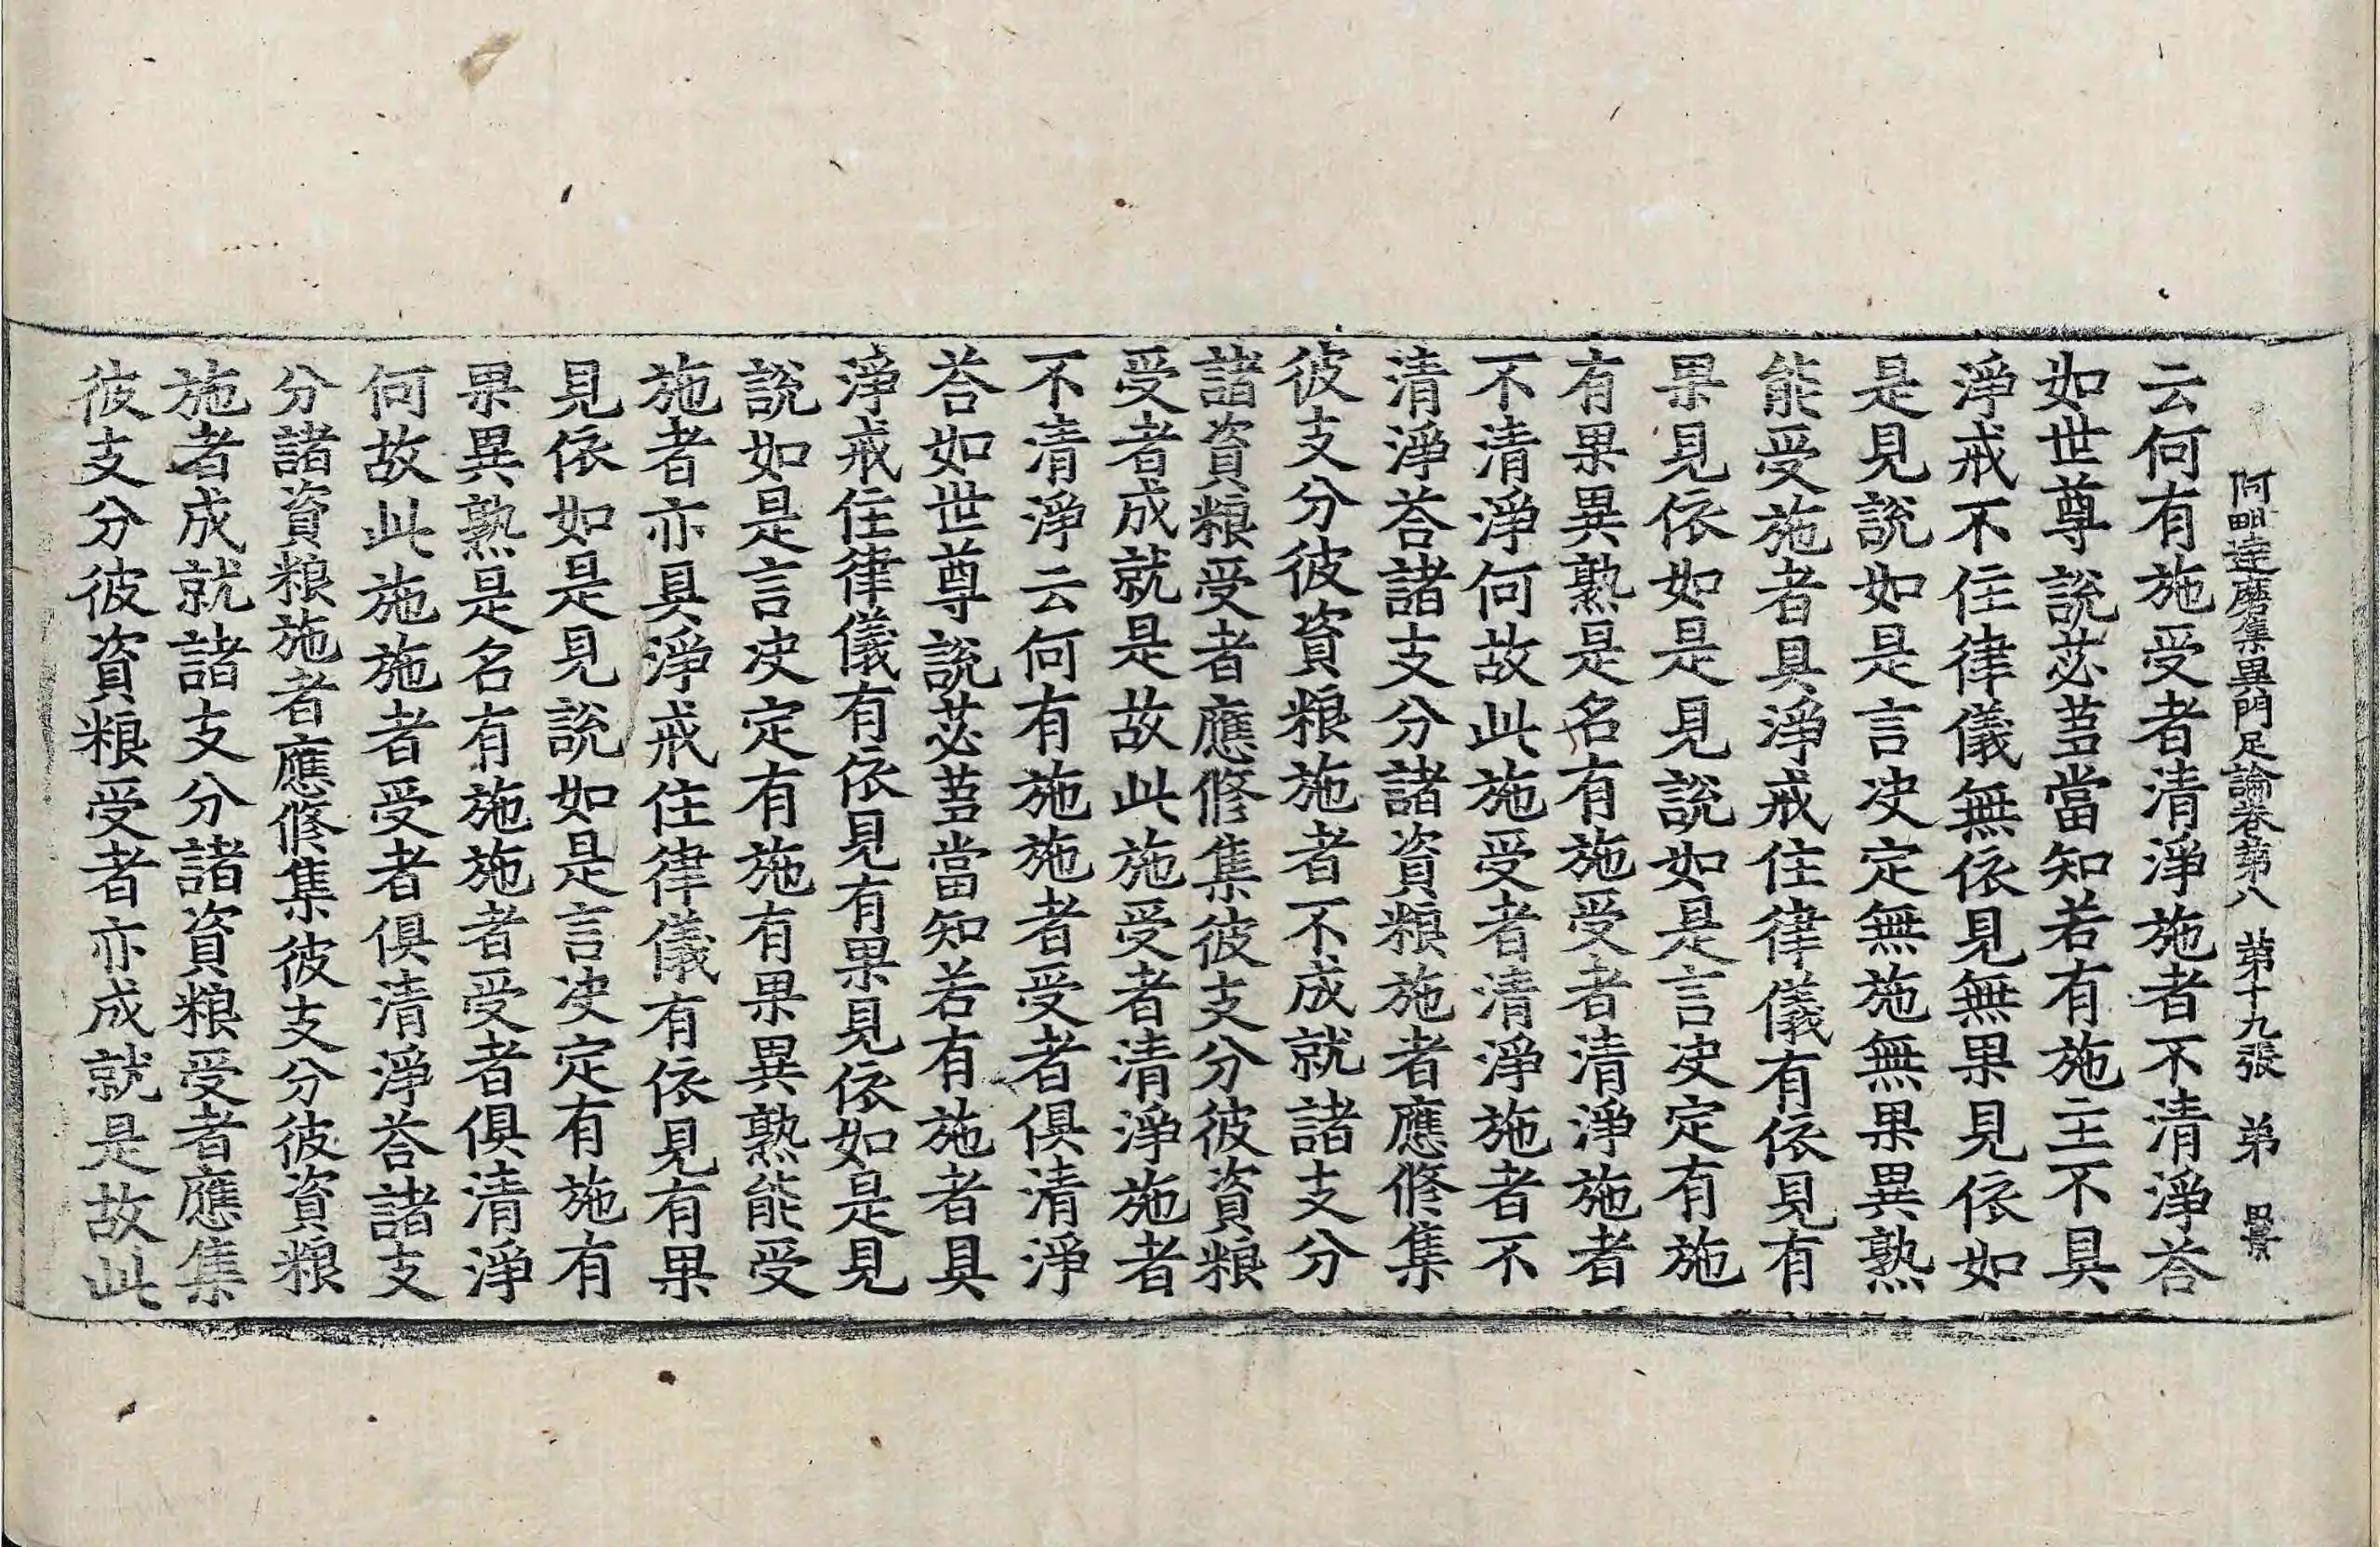 阿毗達磨集異門足論卷第八 第十九張 弟
云何有施受者清淨施者不清淨荅
如世尊說苾蒭當知若有施主不具
淨戒不住律儀無依見無果見依如
是見說如是言决定無施無果異熟
能受施者具淨戒住律儀有依見有
果見依如是見說如是言决定有施
有果異熟是名有施受者清淨施者
不清淨何故此施受者清淨施者不
清淨荅諸支分諸資粮施者應修集
彼支分彼資粮施者不成就諸支分
諸資粮受者應修集彼支分彼資粮
受者成就是故此施受者清淨施者
不清淨云何有施施者受者俱清淨
荅如世尊說苾蒭當知若有施者具
淨戒住律儀有依見有果見依如是見
說如是言决定有施有果異熟能受
施者亦具淨戒住律儀有依見有果
見依如是見說如是言决定有施有
果異熟是名有施施者受者俱清淨
何故此施施者受者俱清淨荅諸支
分諸資粮施者應修集彼支分彼資粮
施者成就諸支分諸資粮受者應集
彼支分彼資粮受者亦成就是故此